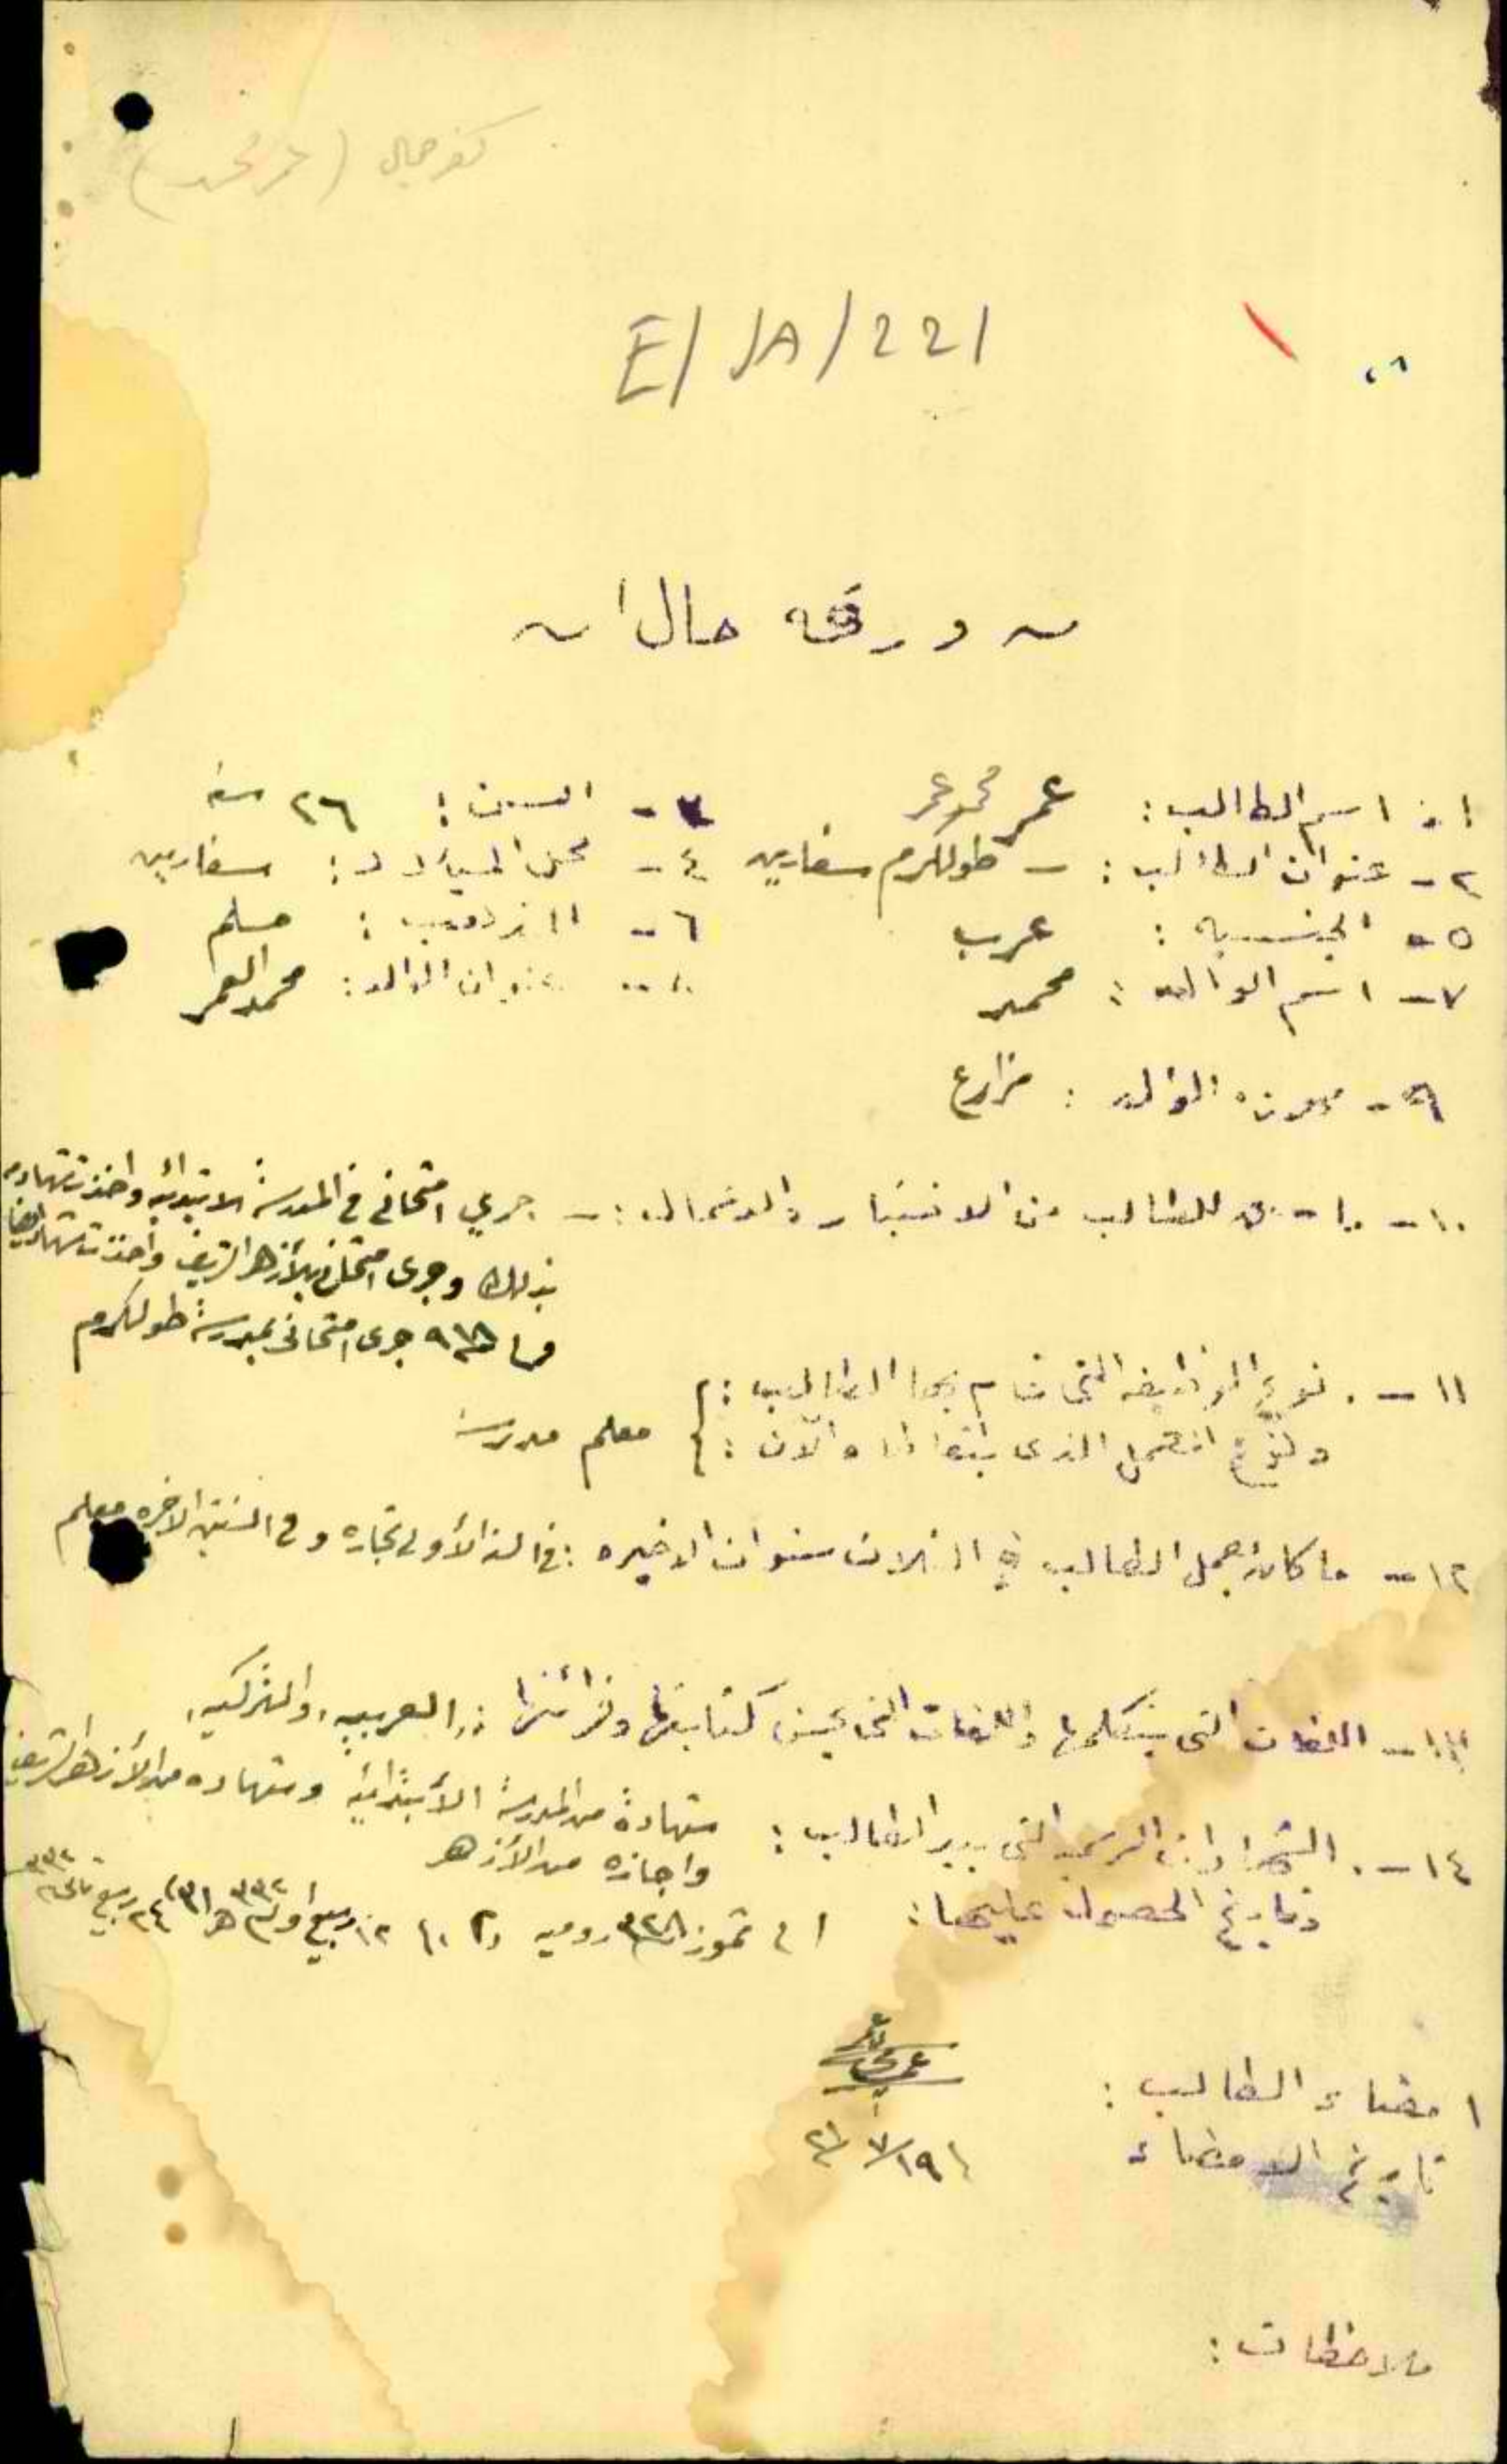 كفر جمال (عمر محمد)
E/JA/221
ورقة حال
١- اسم الطالب: عمر محمد عمر ٣- السن: ٢٦ سنه
٢- عنوان الطالب:- طولكرم سفارين ٤- محل الميلاد: سفارين
٥- الجنسيه: عرب ٦- المذهب: مسلم
٧- اسم الوالد: محمد ٨- عنوان الوالد: محمد العمر
٩- مهنة الوالد: مزارع
١٠- ما للطالب من الاختبار والاشغال:- جرى امتحاني في المدرسة الابتدائيه واخذت شهاده
بذلك وجرى امتحاني بالأزهر الشريف واخذت شهاده ايضا
جرى امتحاني بمدرسة طولكرم
١١- نوع الوظيفه التي قام بها الطالب:
ونوع العمل الذى يتعاطاه الآن: معلم مدرسة
١٢- ما كان يعمل الطالب في الثلاث سنوات الاخيره: في السنة الأولى تجاره وفي السنتين الاخيره معلم
١٣- اللغات التى يتكلمها واللغات التى يحسن كتابتها وقرائتها: العربيه، والتركيه،
١٤- الشهادات الرسميه التى بيد الطالب: شهادة من المدرسة الأبتدائية وشهاده من الأزهر الشريف
واجازه من الأزهر
وتاريخ الحصول عليها: تموز ٣٢٨ روميه ١٢ ربيع أول ٣٣٢ هـ ٢٤ ربيع ثاني ٣٣٢
امضاء الطالب:
تاريخ الامضاء
ملاحظات: